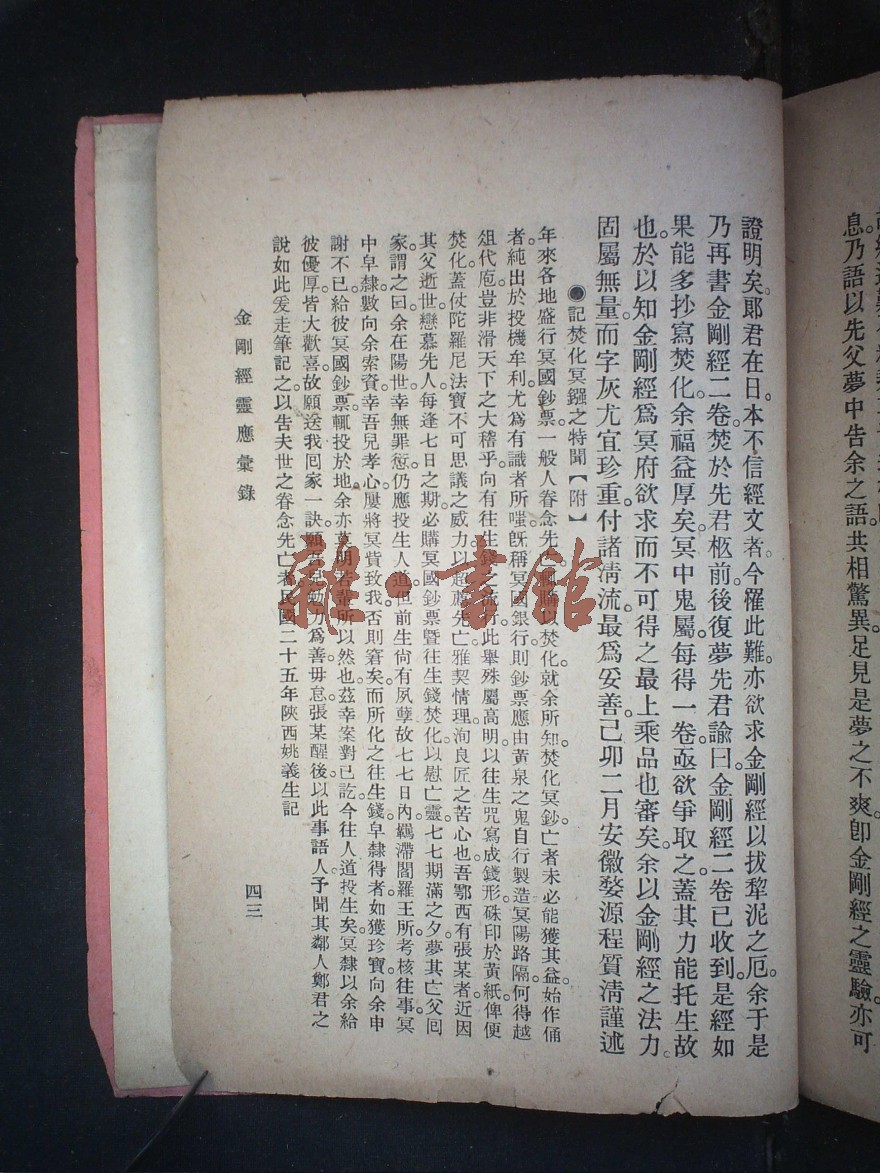 息乃語以先父夢中告余之語共相驚異足見是夢之不爽卽金剛經之靈驗亦可
證明矣。郞君在日。本不信經文者。今罹此難。亦欲求金剛經以拔犂泥之厄。余于是
乃再書金剛經二卷。焚於先君柩前。後復夢先君諭曰。金剛經二卷已收到。是經如
果能多抄寫焚化。余福益厚矣。冥中鬼屬。每得一卷。亟欲爭取之。蓋其力能托生故
也。於以知金剛經爲冥府欲求而不可得之最上乘品也審矣。余以金剛經之法力。
固屬無量。而字灰尤宜珍重。付諸淸流。最爲妥善。己卯二月安徽婺源程質淸謹述
●記焚化冥鏹之特聞【附】
年來各地盛行冥國鈔票。一般人眷念先亡。輒購以焚化。就余所知。焚化冥鈔。亡者未必能獲其益。始作俑
者。純出於投機牟利。尤爲有識者所嗤。旣稱冥國銀行。則鈔票應由黃泉之鬼自行製造。冥陽路隔。何得越
俎代庖。豈非滑天下之大稽乎。向有往生錢之流行。此舉殊屬高明。以往生咒寫成錢形。硃印於黃紙。俾便
焚化。蓋仗陀羅尼法寶不可思議之威力。以超薦先亡。雅契情理。洵良匠之苦心也。吾鄂西有張某者。近因
其父逝世。戀慕先人。每逢七日之期。必購冥國鈔票暨往生錢焚化。以慰亡靈。七七期滿之夕。夢其亡父囘
家。謂之曰。余在陽世。幸無罪愆。仍應投生人道。但前生尙有夙孽。故七七日內。羈滯閻羅王所。考核往事。冥
中皁隸。數向余索資。幸吾兒孝心。屢將冥貲致我。否則窘矣。而所化之往生錢。皁隸得者。如獲珍寶。向余申
謝不已。給彼冥國鈔票。輒投於地。余亦莫明若輩所以然也。茲幸案對已訖。今往人道投生矣。冥隸以余給
彼優厚。皆大歡喜。故願送我囘家一訣。願吾兒勉力爲善毋怠。張某醒後。以此事語人。予聞其鄰人鄭君之
說如此。爰走筆記之。以告夫世之眷念先亡者。民國二十五年陝西姚義生記
金剛經靈應彙錄
四三
雜·書館